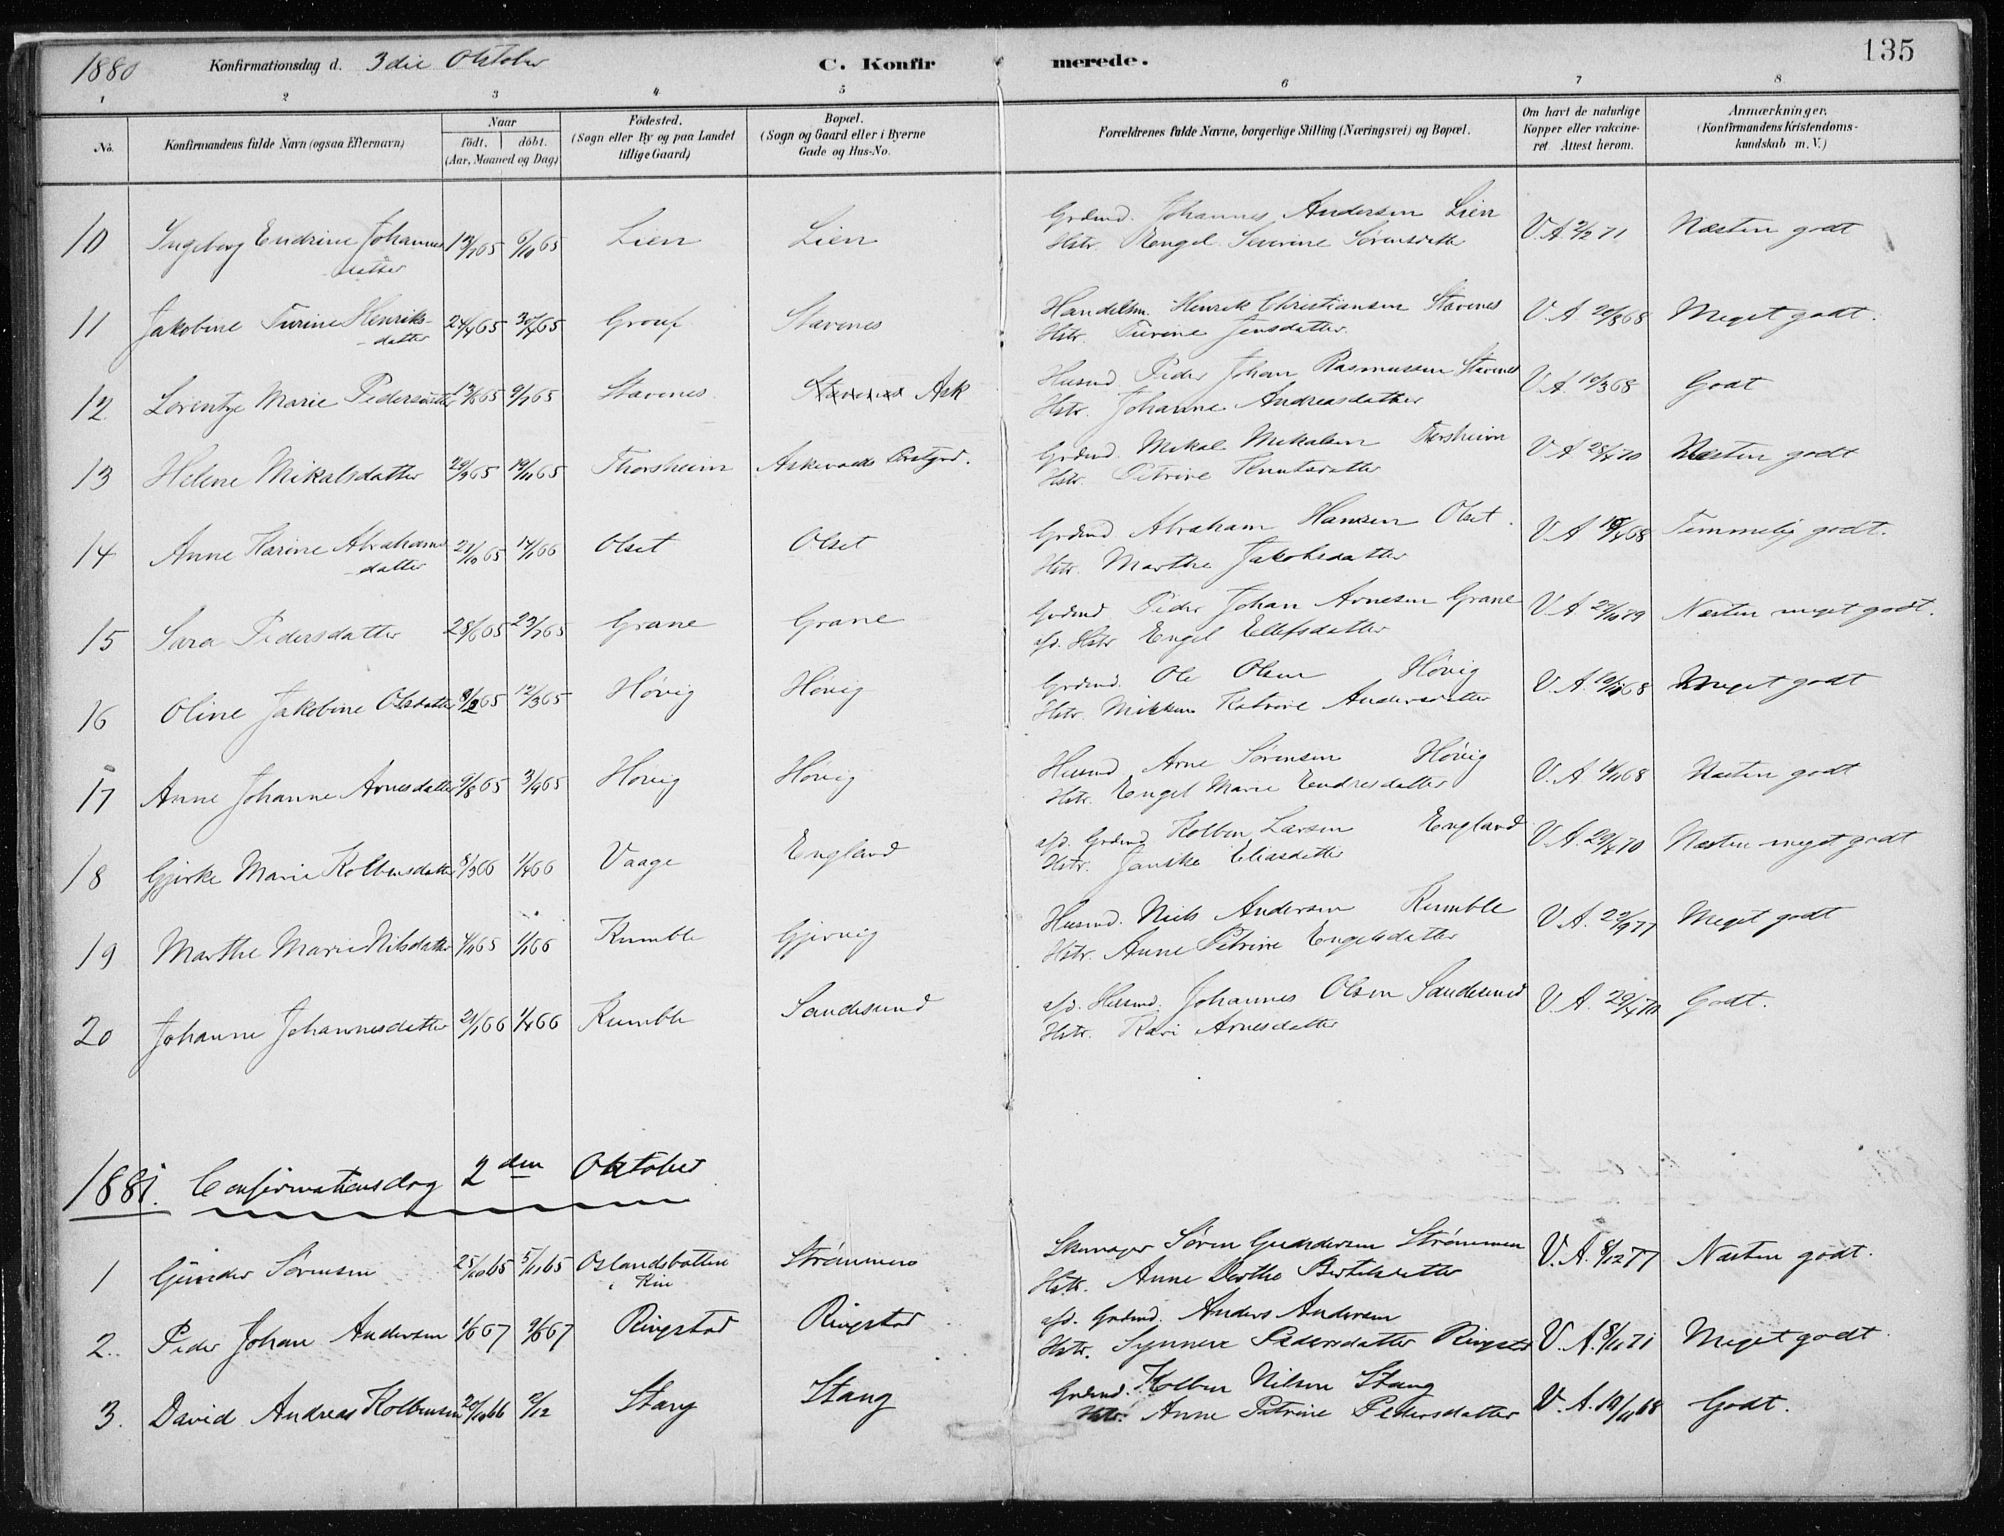 1880 Konfirmationsdag d. 3die Oktober C. Konfirmerede. 135
1 2 3 4 5 6 7 8.
No. Konfirmandens fulde Navn (ogsaa Efternavn) Naar födt. döbt. (Aar, Maaned og Dag) Födested. (Sogn eller By og paa Landet tillige Gaard) Bopæl. (Sogn og Gaard eller i Byerne Gade og Hus-No. Forældrenes fulde Navne, borgerlige Stilling (Næringsvei) og Bopæl. Om havt de naturlige Kopper eller vakcineret. Attest herom. Anmærkninger, (Konfirmandens Kristendomskundskab m. V.)
10 Ingeborg Endrine Johannes- 65 6/10 65 Lien Lien Grdmd. Johannes Andersen Lien V. A. 2/2 71 Næsten godt
datter Hstr. Rengel Severine Sørensdatter
11 Jakobine Turine Henriks- 24/4 65 30/4 65 Grouf Stavenes Handelsm. Henrik Christiansen Stavenes V. A. 20/8 68 Meget godt.
-datter Hstr. Turine Jensdatter.
12 Lorentze Marie Pedersdatter 13/6 65 9/7 65 Stavenes Stavenes Ask Husmd. Peder Johan Rasmussen Stavenes V. A. 10/3 68 Godt
Hstr. Johanne Andreasdatter
13 Helene Mikalsdatter 29/9 65 19/11 65 Thorsheim Askevolds Prstgrd. Grdmd. Mikal Mikalsen Thorsheim V. A. 28/4 70 Næsten godt
Hstr. Petrine Knutsdatter
14 Anne Karine Abrahams- 21/10 65 14/1 66 Olset Olset Grdmd Abraham Hansen Olset. V. A. 68 Temmelig godt.
-datter Hstr. Marthe Jakobsdatter
15 Sara Pedersdatter 28/6 65 23/7 65 Grane Grane Grdmd Peder Johan Arnesen Grane V. A. 79 Næsten meget godt.
afd. Hstr Engel Ellefsdatter
16 Oline Jakobine Olsdatter 8/2 65 12/3 65 Høvig Høvig Grdmd. Ole Olsen Høvig V. A. 68 Meget godt
Hstr. Mikkeline Katrine Andersdatter
17 Anne Johanne Arnesdatter 9/8 65 3/9 65 Høvig Høvig Husmd Arne Sørensen Høvig V. A. 68 Næsten godt
Hstr. Engel Marie Endresdatter
18 Gjerke Marie Kolbensdatter 8/3 66 1/4 66 Vaage England afd. Grdmd Kolben Larsen England V. A. 29/4 70 Næsten meget godt
Hstr. Janike Eliasdatter
19 Marthe Marie Nilsdatter 4/11 65 1/1 66 Kumble Gjervig Husmd. Niels Andersen Kumble V. A. 22/9 77 Meget godt
Hstr. Anne Petrine Engelsdatter
20 Johanne Johannesdatter 21/1 66 1/4 66 Kumble Sandesund afd. Husmd. Johannes Olsen Sandesund V. A. 29/4 70 Godt.
Hstr. Kari Arnesdatter
1881. Confirmationsdag 2den Oktober
1 Gunder Sørensen 25/10 65 5/11 65 Oslandsbotten Strømmen Søren Gundersen Strømmen V. A. 8/12 77 Næsten godt.
Kin Hstr. Anne Dorthe Bertelsdatter
2. Peder Johan Andersen 1/6 67 9/6 67 Ringstad Ringstad afd. Grdmd. Anders Andersen
Hstr. Synneve Pedersdatter Ringstad V. A. 8/11 71 Meget godt.
3. David Andreas Kolbensen 20/10 66 2/12 Stang Stang Grdmd. Kolben Nilsen Stang V. A. 19/11 68 Godt.
Hstr. Anne Petrine Pedersdatter